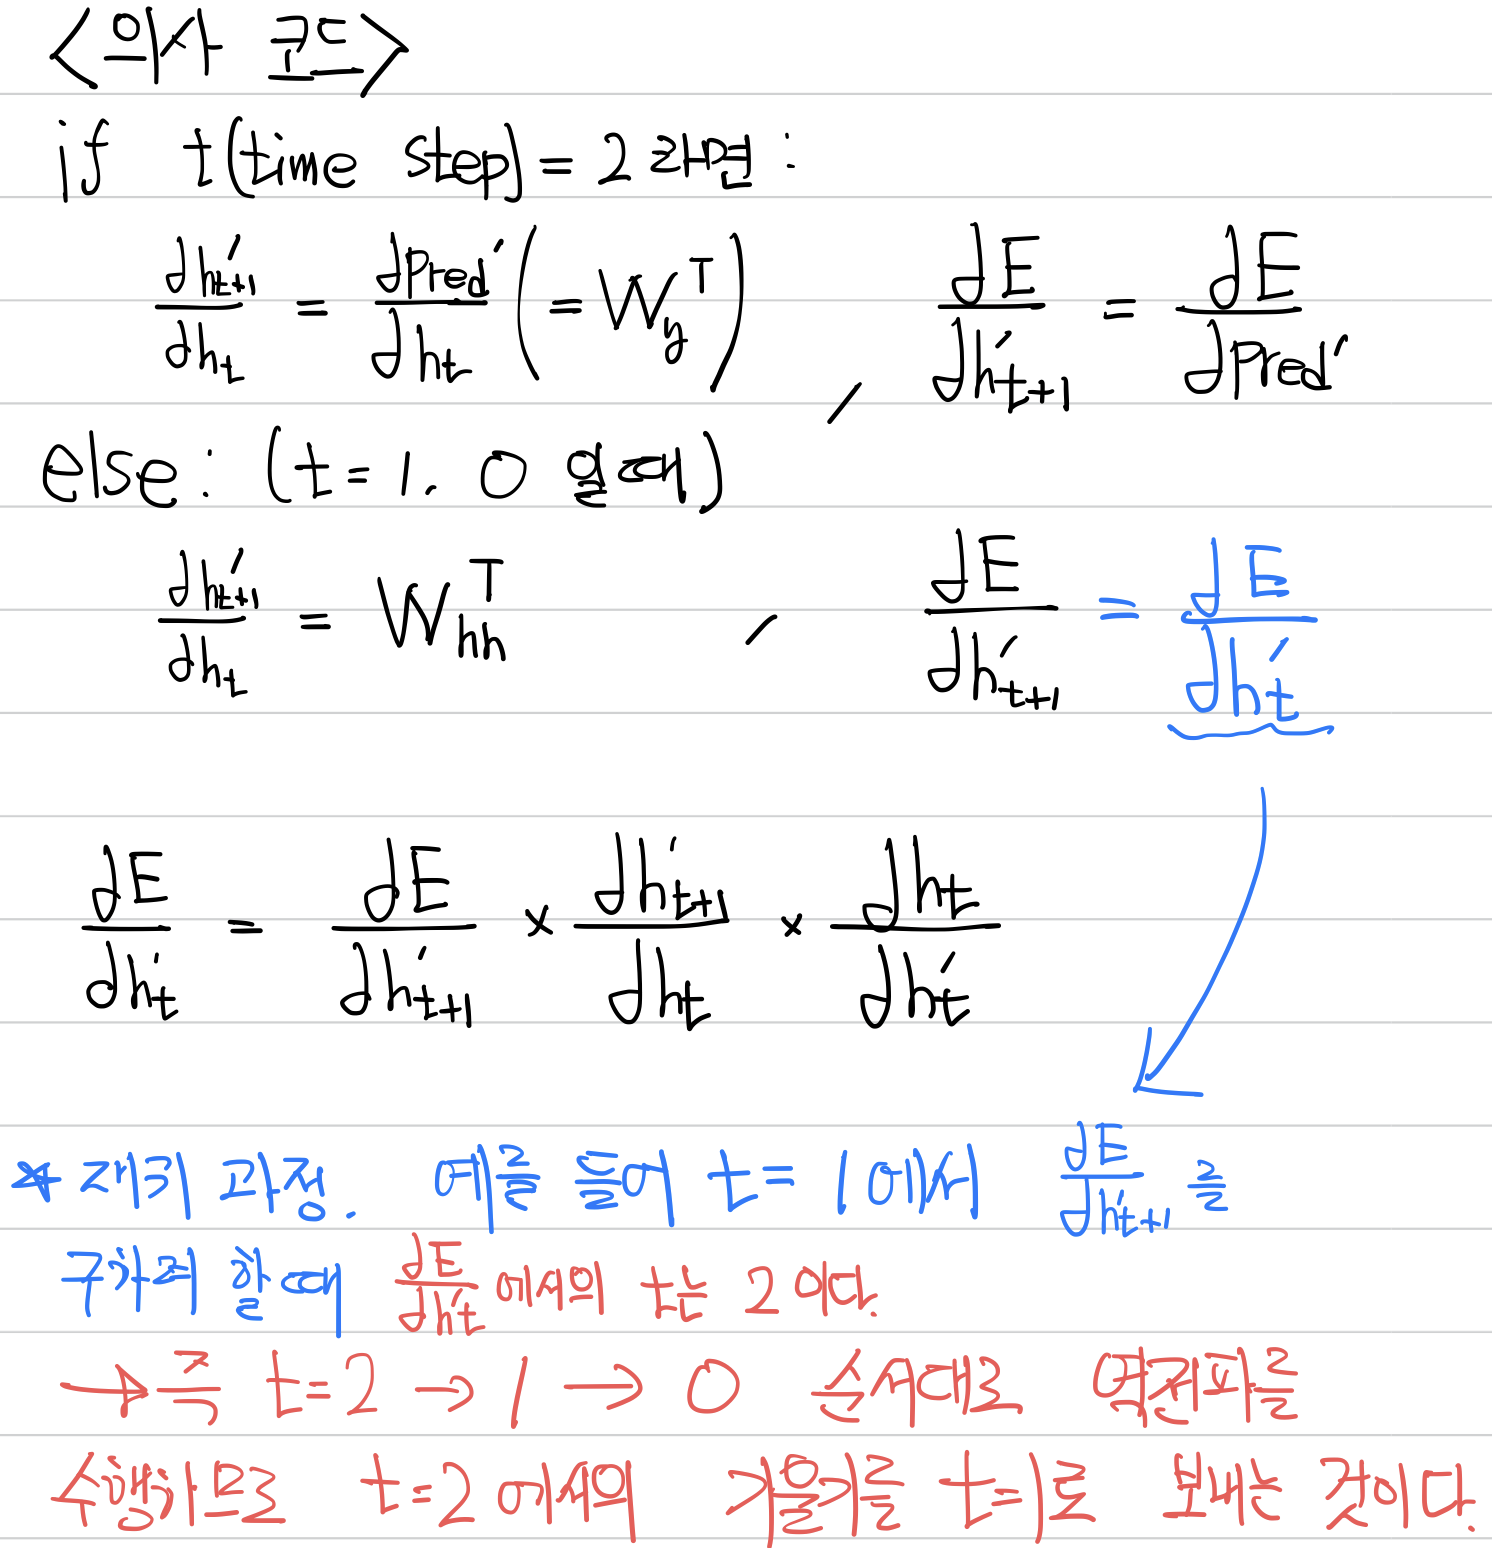 <의사 코드>
if t(time step) = 2 라면 :
dh't+1/dht = dPred'/dht (= Wy^T) , dE/dh't+1 = dE/dPred'
else : (t = 1. 0 일때)
dh't+1/dht = Whh^T , dE/dh't+1 = dE/dh't
dE/dh't = dE/dh't+1 × dh't+1/dht × dht/dh't
* 재귀 과정. 예를 들어 t = 1 에서 dE/dh't+1 를
구하려 할때 dE/dh't 에서의 t는 2 이다.
→ 즉 t = 2 → 1 → 0 순서대로 역전파를
수행하므로 t = 2 에서의 기울기를 t = 1로 보내는 것이다.